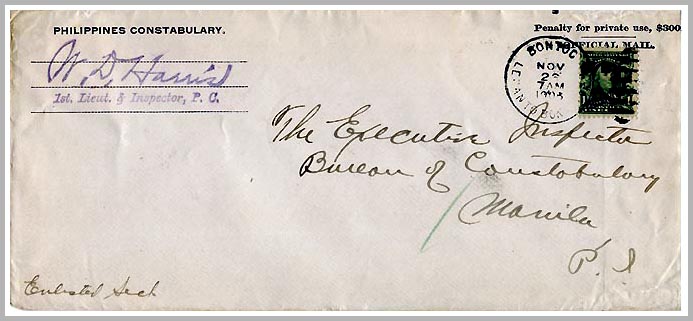 PHILIPPINES CONSTABULARY.
W. D. Harris
1st. Lieut. & Inspector, P. C.
Penalty for private use, $300
OFFICIAL MAIL.
BONTOC
NOV
7AM
The Executive Inspector
Bureau of Constabulary
Manila
P. I
Enlisted Sech